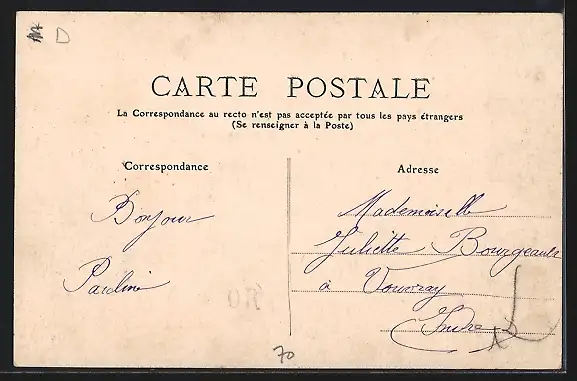 D
CARTE POSTALE
La Correspondance au recto n'est pas acceptée par tous les pays étrangers
(Se renseigner à la Poste)
Correspondance
Bonjour
Pauline
Adresse
Mademoiselle
Juliette Bourgeault
à Vouvray
Indre
70